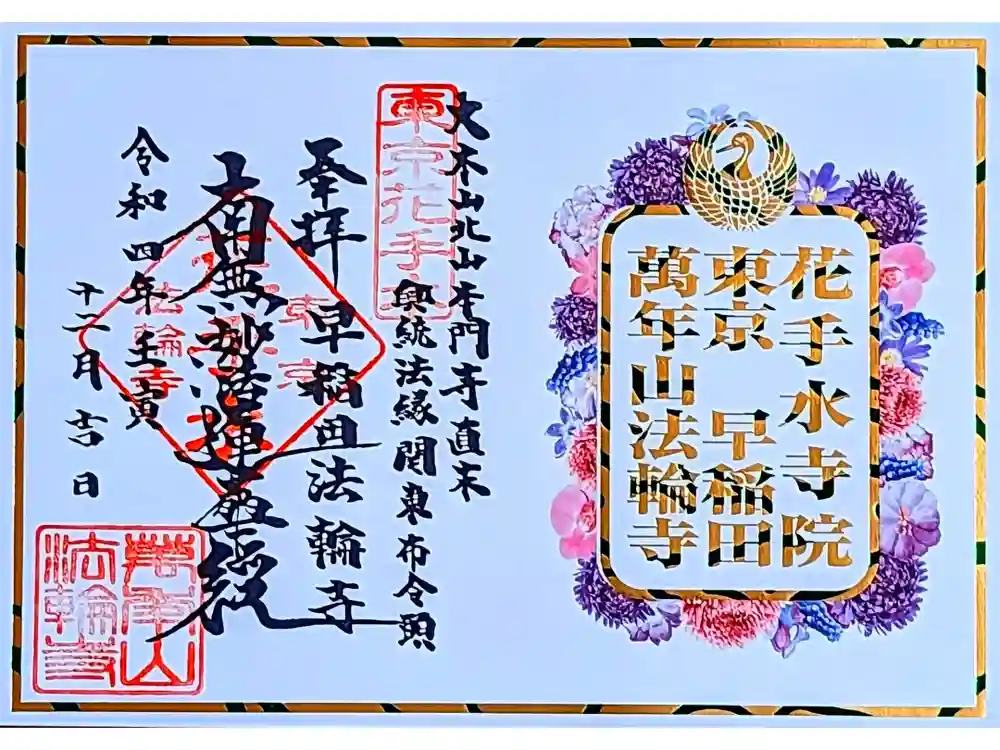 花手水寺院
東京 早稲田
萬年山法輪寺
東京花手水
大本山北山本門寺直末
興統法縁関東布令頭
奉拝 早稲田法輪寺
南無妙法蓮華経
東京
法輪寺
令和四年壬寅
十二月吉日
萬年山
法輪寺